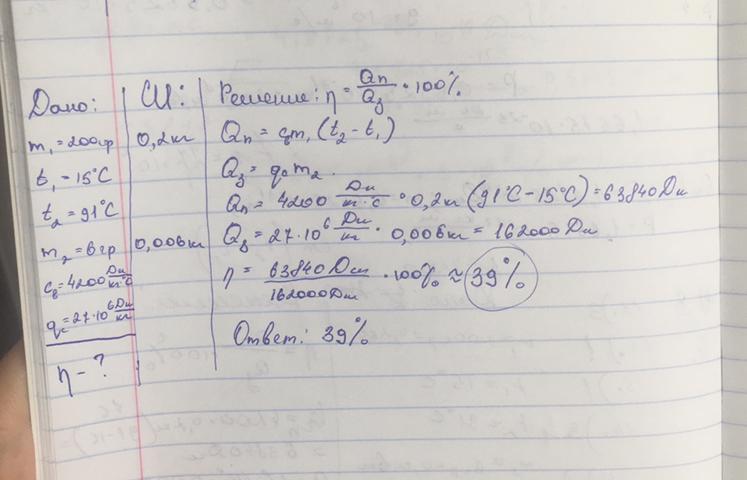 Дано:
m₁ = 200гр
t₁ = 15°C
t₂ = 91°C
m₂ = 6гр
c_в = 4200 Дж/кг·°C
q_c = 27·10⁶ Дж/кг
η - ?
СИ:
0,2кг
0,006кг
Решение: η = Qп/Qз · 100%
Qп = c_в m₁ (t₂ - t₁)
Qз = q_c m₂.
Qп = 4200 Дж/кг·°C · 0,2кг (91°C - 15°C) = 63840 Дж
Qз = 27·10⁶ Дж/кг · 0,006кг = 162000 Дж
η = 63840 Дж/162000 Дж · 100% ≈ 39%
Ответ: 39%